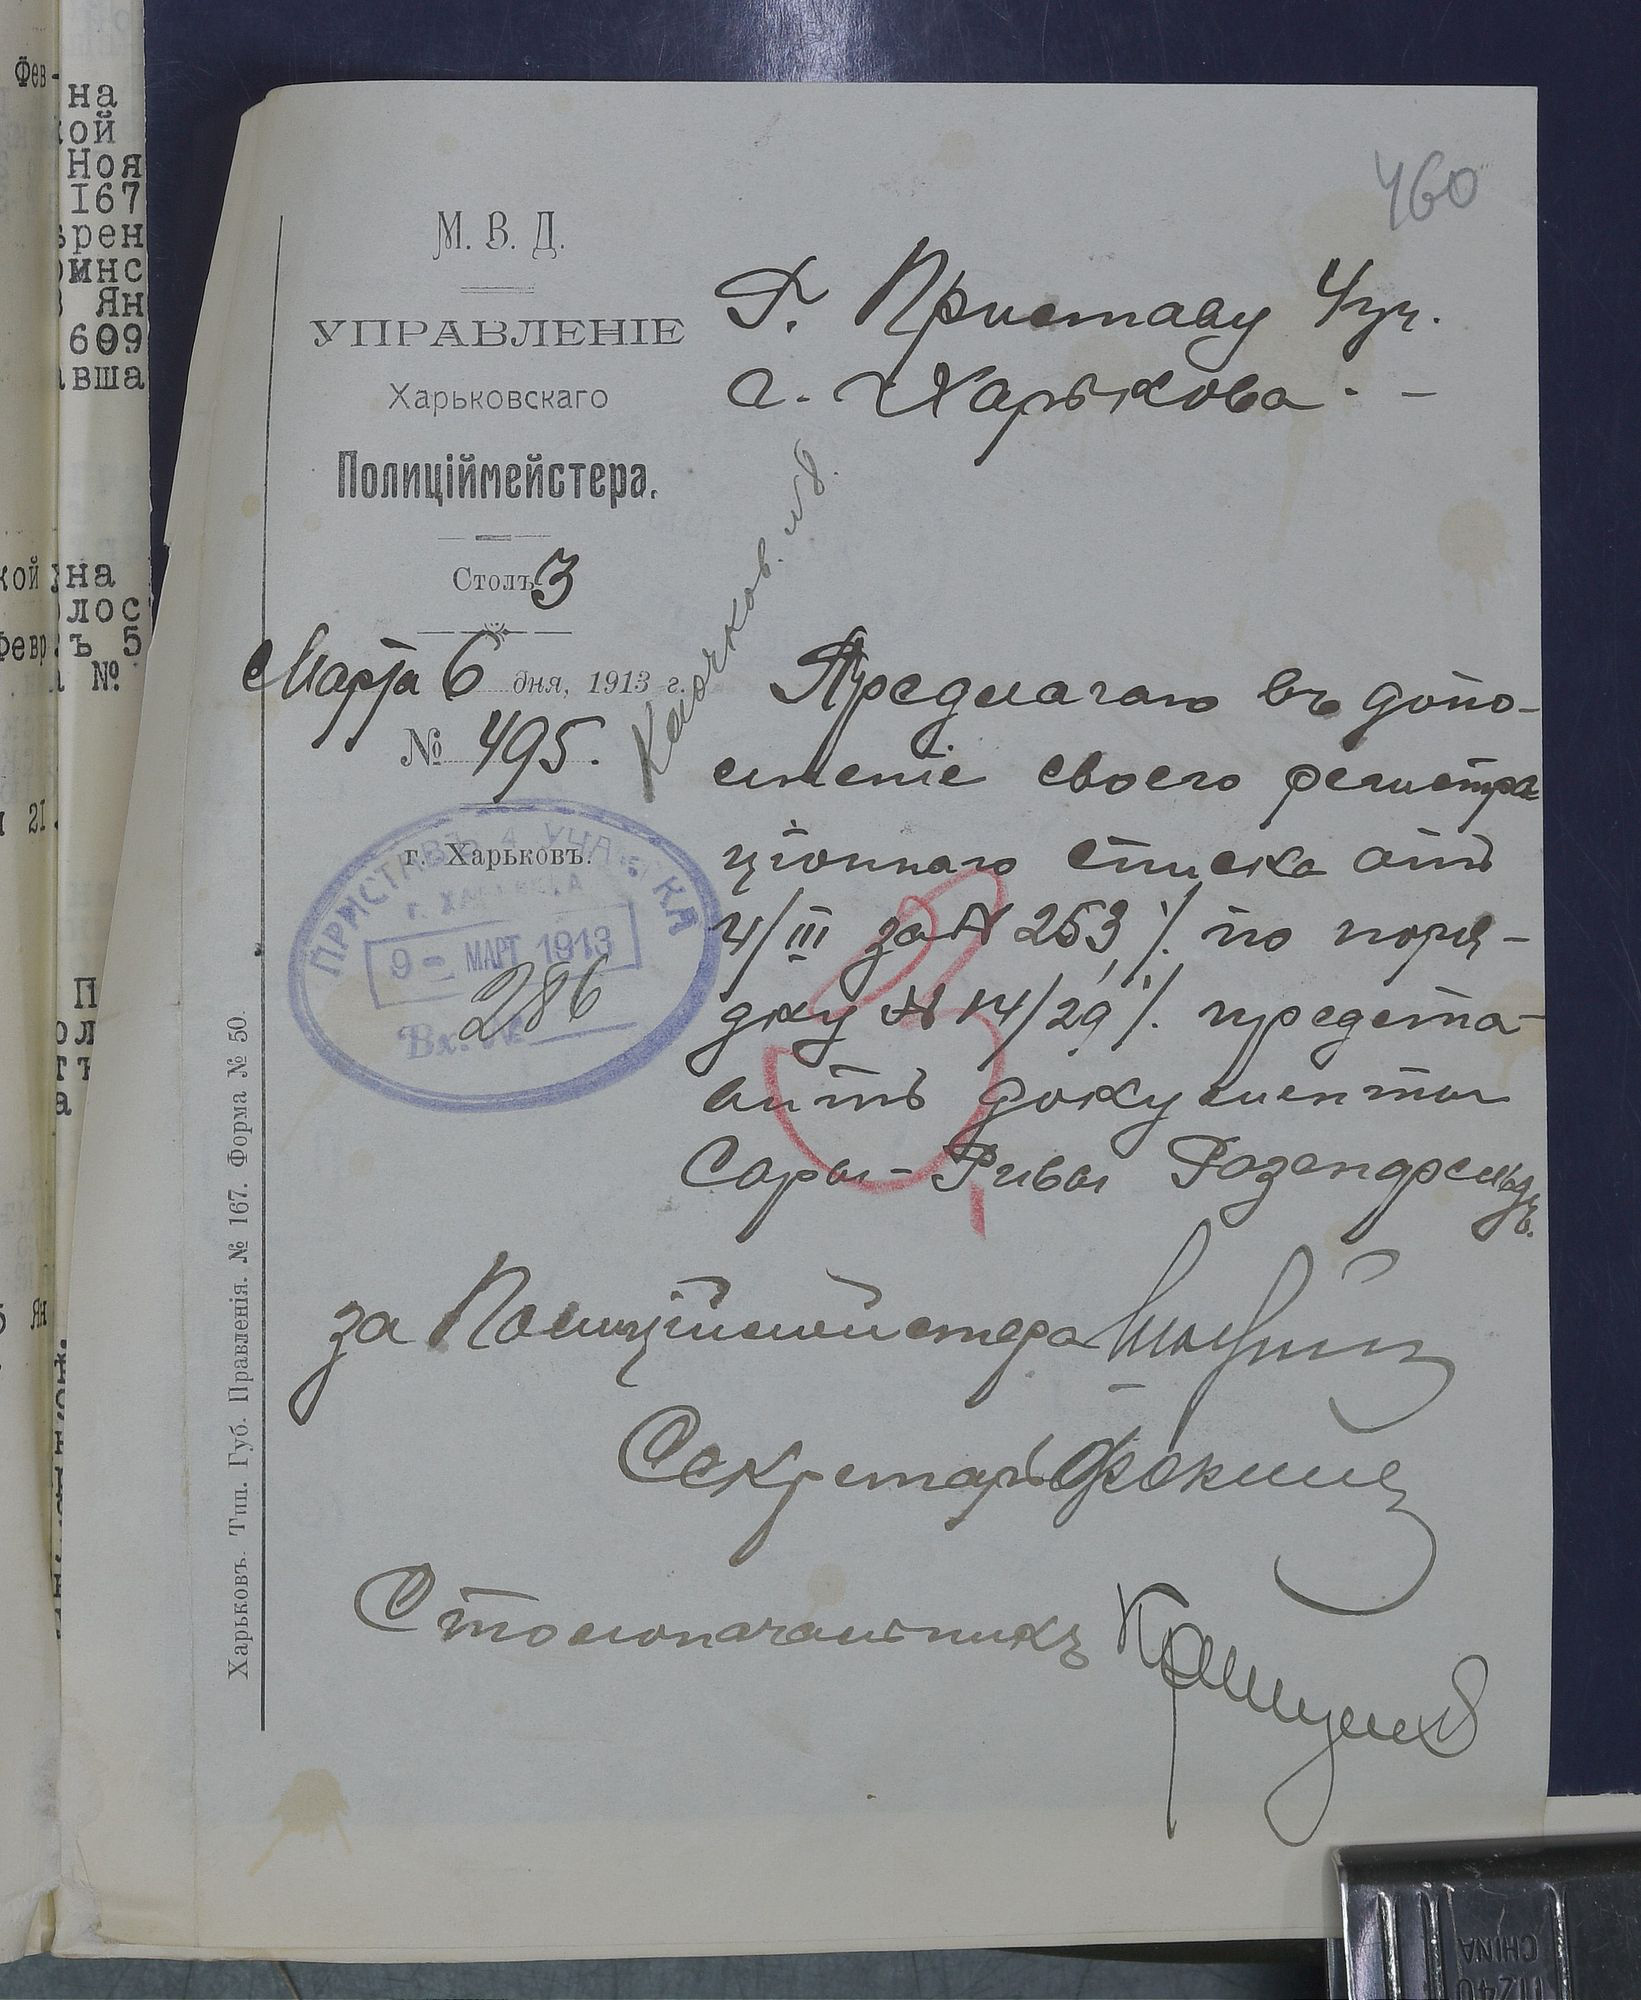 460
М. В. Д.
УПРАВЛЕНІЕ
Харьковскаго
Полиціймейстера.
Столъ 3
Марта 6 дня, 1913 г.
№ 495.
г. Харьковъ.
ПРИСТАВЪ 4 УЧАСТКА
г. ХАРЬКОВА
9 - МАРТ 1913
286
Вх. №
Харьковъ. Тип. Губ. Правленія. № 167. Форма № 50.
Г. Приставу 4 уч.
г. Харькова. -
Клочков. № 8.
Предлагаю въ допо-
лненіе своего регистра
ціоннаго списка отъ
4/III за № 253, %. по поря-
дку № 14/29 %. предста-
вить документы
Сары-Ривы Розенфельдъ.
за Полиціймейстера
Секретарь
Столоначальникъ
Фев-
на
кой
Ноя
167
рен
минс
Ян
609
вша
кой
на
лос
Февр
ъ 5
№
21.
П
ол
тъ
а
Ян
CHINA